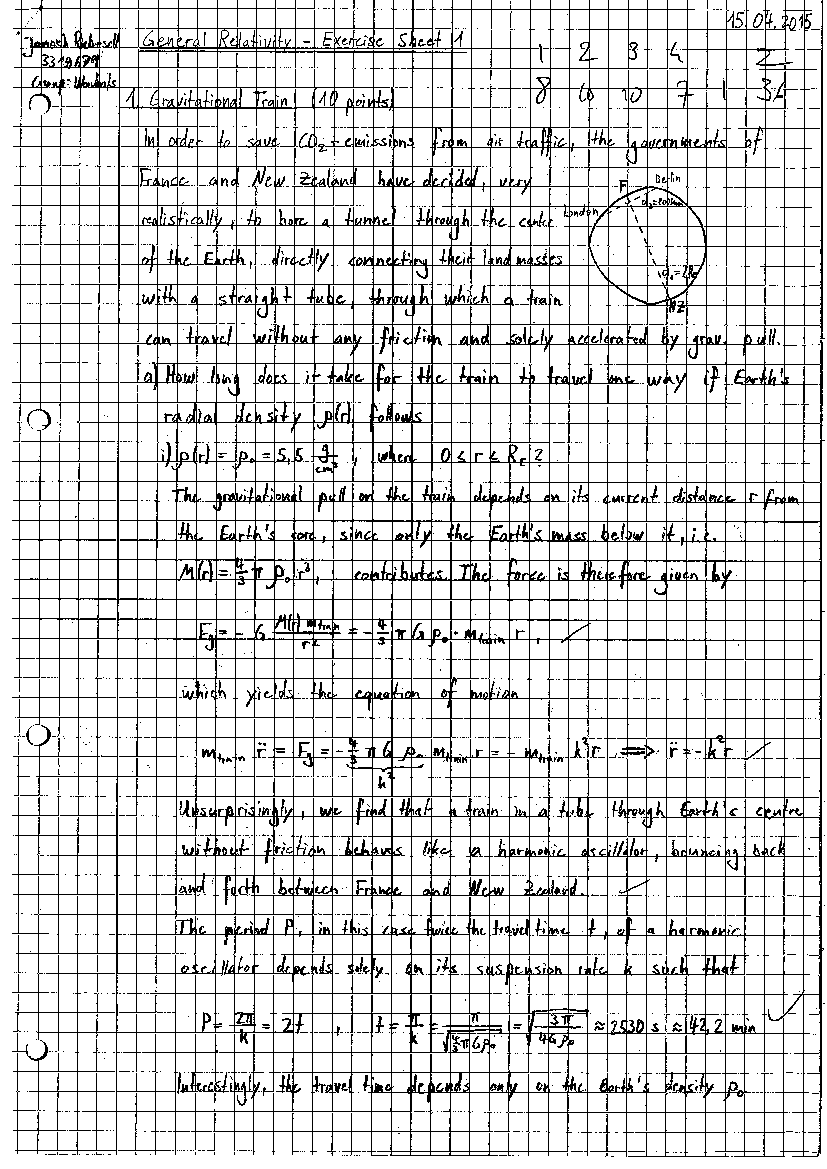 15.04.2015
General Relativity - Exercise Sheet 1
3319679
Group:
1 2 3 4 Σ
8 10 10 7
1. Gravitational Train (10 points)
In order to save CO₂-emissions from air traffic, the governments of
France and New Zealand have decided, very
realistically, to bore a tunnel through the center
of the Earth, directly connecting their land masses
with a straight tube, through which a train
can travel without any friction and solely accelerated by grav. pull.
F Berlin
London
NZ
a) How long does it take for the train to travel one way if Earth's
radial density ρ(r) follows
i) ρ(r) = ρ₀ = 5,5 g/cm³, where 0 ≤ r ≤ R_E ?
The gravitational pull on the train depends on its current distance r from
the Earth's core, since only the Earth's mass below it, i.e.
M(r) = 4/3 π ρ₀ r³, contributes. The force is therefore given by
F_g = - G M(r) m_train / r² = - 4/3 π G ρ₀ · m_train r,
which yields the equation of motion
m_train r̈ = F_g = - 4/3 π G ρ₀ m_train r = - m_train k² r ⟹ r̈ = -k² r
k²
Unsurprisingly, we find that a train in a tube through Earth's centre
without friction behaves like a harmonic oscillator, bouncing back
and forth between France and New Zealand.
The period P, in this case twice the travel time t, of a harmonic
oscillator depends solely on its suspension rate k such that
P = 2π/k = 2t , t = π/k = π/√(4/3 π G ρ₀) = √(3π/(4Gρ₀)) ≈ 2530 s ≈ 42,2 min
Interestingly, the travel time depends only on the Earth's density ρ₀